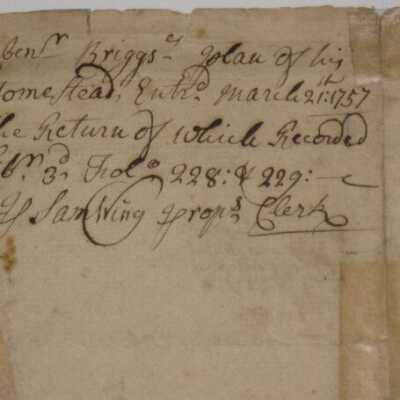 Benr Briggs's plan of his
Homestead, Entrd March 21st: 1757
the Return of which Recorded
Libr 3d Folo 228: & 229:
pr Sam Wing proprs Clerk